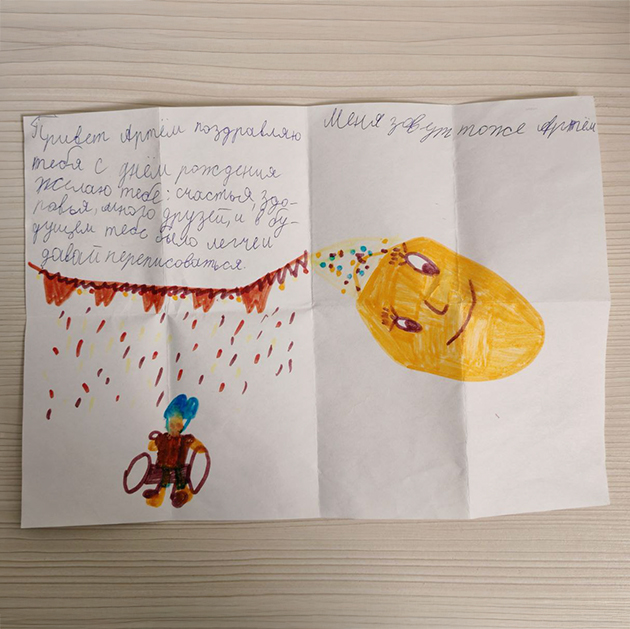 Привет Артём поздравляю
тебя с днём рождения
желаю тебе: счастья, здо-
ровья, много друзей, и в бу-
дущем тебе было легчей
давай переписоваться.
Меня зовут тоже Артём